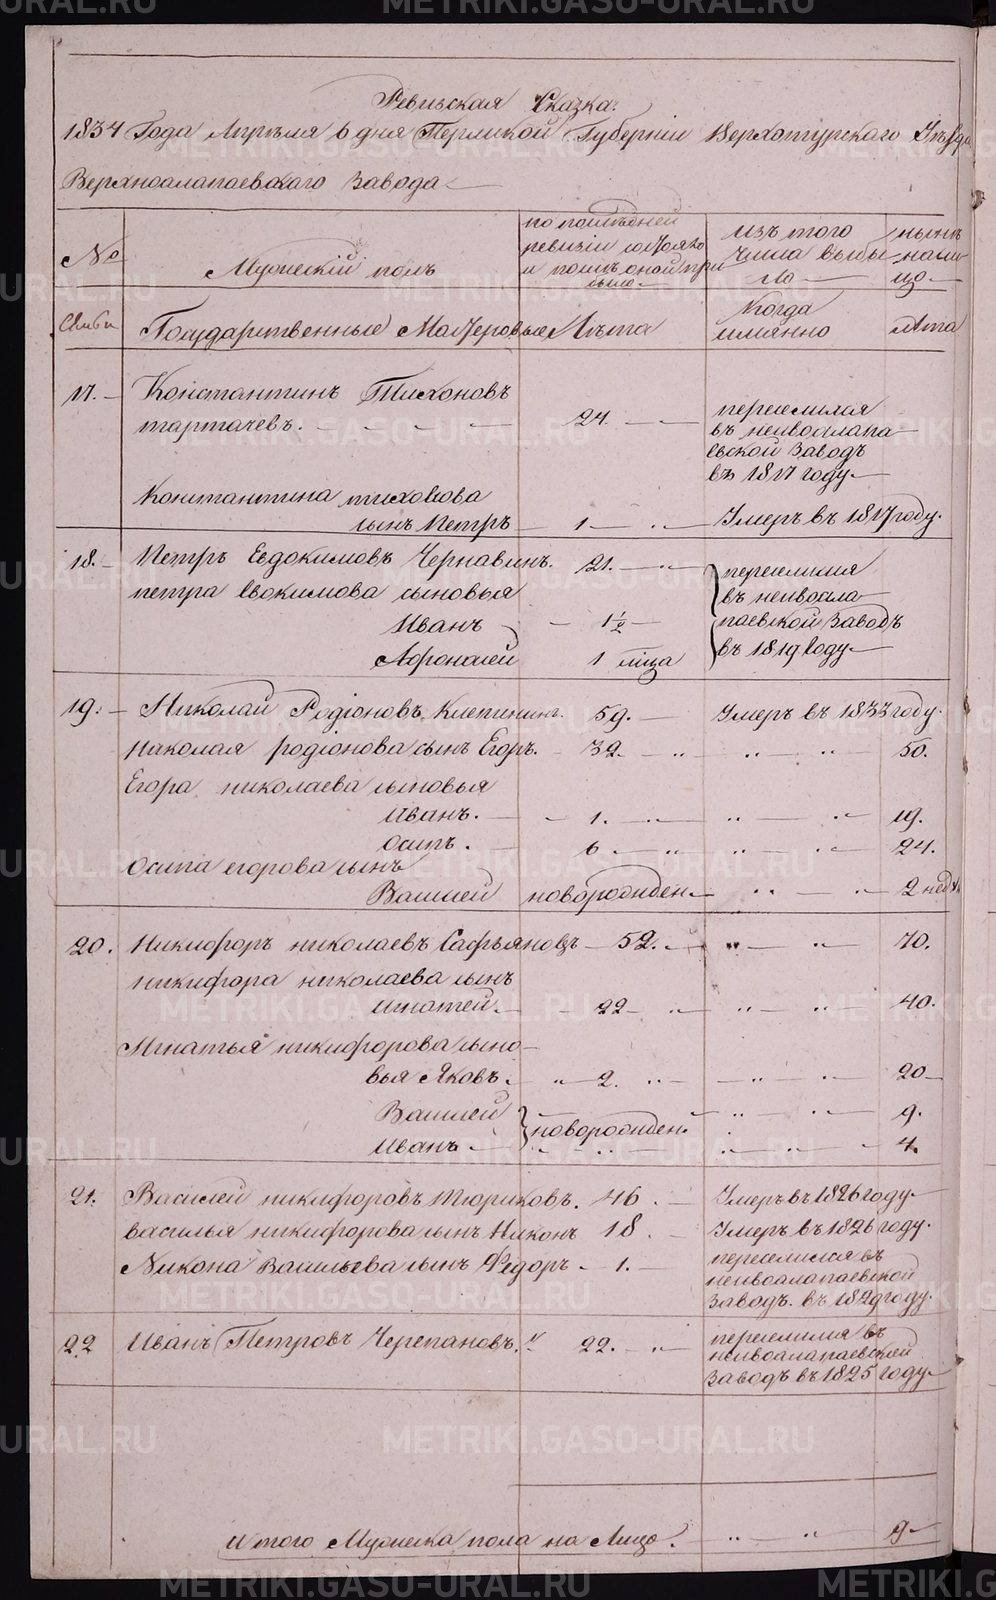 Ревизская Сказка.
1834 Года Апрѣля 6 дня Пермской Губерніи Верхотурскаго Уѣзда
Верхнеалапаевскаго Завода
№
Мужескій полъ
по послѣдней
ревизіи состояло
и послѣ оной при
было
изъ того
числа выбы
ло
нынѣ
нали
цо
Семьи
Государственные Мастеровые
Лѣта
Когда
имянно
лѣта
17. Констянтинъ Тихоновъ
тартачевъ. 24.
переселился
въ нейвоалапа
евской Заводъ
въ 1817 году.
Констянтина тихонова
сынъ Петръ 1 Умеръ въ 1817 году.
18. Петръ Евдокимовъ Чернавинъ. 21.
петра Евокимова сыновья
Иванъ 1½
Афонасей 1 мѣсца
переселился
въ нейвоала
паевской Заводъ
въ 1819 году
19. Николай Родіоновъ Клепининъ. 59. Умеръ въ 1833 году.
Николая родіонова сынъ Егоръ. 32. „ „ „ 50.
Егора николаева сыновья
Иванъ. 1. „ „ „ 19.
Осипъ. 6 „ „ „ 24.
Осипа егорова сынъ
Василей новорожден „ „ 2 нед
20. Никифоръ николаевъ Сафьяновъ 52. „ „ 70.
никифора николаева сынъ
Игнатей. 22 „ „ „ 40.
Игнатья никифорова сыно
вья Яковъ. „ 2. „ „ „ 20
Василей „ „ 9.
новорожден
Иванъ 4.
21. Василей никифоровъ Тюриковъ. 46. Умеръ въ 1826 году.
василья никифорова сынъ Никонъ 18. Умеръ въ 1826 году.
Никона Васильева сынъ Федоръ 1.
переселился въ
нейвоалапаевской
Заводъ. въ 1829 году.
22 Иванъ Петровъ Черепановъ. „ 22. „
переселился въ
нейвоалапаевской
Заводъ въ 1825 году
итого Мужеска пола на Лицо. „ „ 9
METRIKI.GASO-URAL.RU